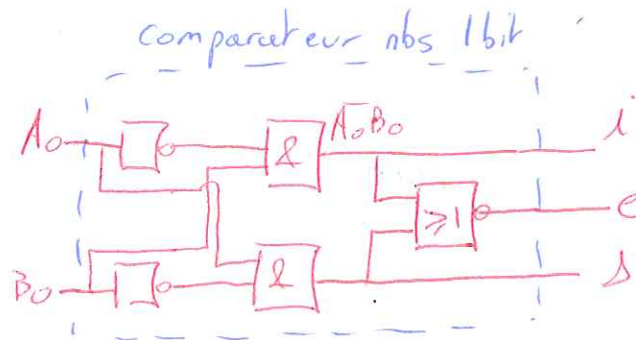 comparateur nbs 1bit
A₀
&
A̅₀B₀
i
≥1
e
B₀
&
s